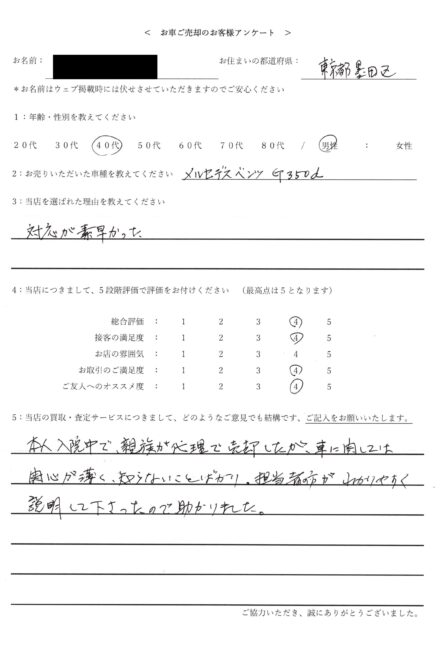 ＜ お車ご売却のお客様アンケート ＞
お名前： お住まいの都道府県： 東京都墨田区
＊お名前はウェブ掲載時には伏せさせていただきますのでご安心ください
1：年齢・性別を教えてください
20代 30代 40代 50代 60代 70代 80代 / 男性 ： 女性
2：お売りいただいた車種を教えてください メルセデスベンツ G350d
3：当店を選ばれた理由を教えてください
対応が素早かった
4：当店につきまして、5段階評価で評価をお付けください （最高点は5となります）
総合評価 ： 1 2 3 4 5
接客の満足度 ： 1 2 3 4 5
お店の雰囲気 ： 1 2 3 4 5
お取引のご満足度 ： 1 2 3 4 5
ご友人へのオススメ度 ： 1 2 3 4 5
5：当店の買取・査定サービスにつきまして、どのようなご意見でも結構です、ご記入をお願いいたします。
本人入院中で、親族が代理で売却したが、車に関しては
関心が薄く、知らないことばかり。担当者の方がわかりやすく
説明して下さったので助かりました。
ご協力いただき、誠にありがとうございました。